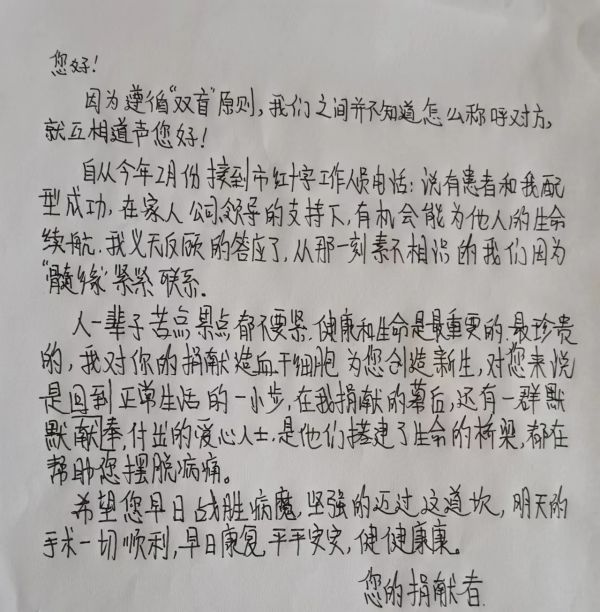 您好！
因为遵循“双盲”原则，我们之间并不知道怎么称呼对方，
就互相道声您好！
自从今年2月份接到市红十字工作人员电话：说有患者和我配
型成功，在家人公司领导的支持下，有机会能为他人的生命
续航，我义无反顾的答应了，从那一刻素不相识的我们因为
“髓缘”紧紧联系．
人一辈子苦点累点都不要紧，健康和生命是最重要的，最珍贵
的，我对你的捐献造血干细胞为您创造新生，对您来说
是回到正常生活的一小步，在我捐献的幕后，还有一群默
默献奉，付出的爱心人士，是他们搭建了生命的桥梁，都在
帮助您摆脱病痛。
希望您早日战胜病魔，坚强的迈过这道坎，明天的
手术一切顺利，早日康复，平平安安，健健康康。
您的捐献者